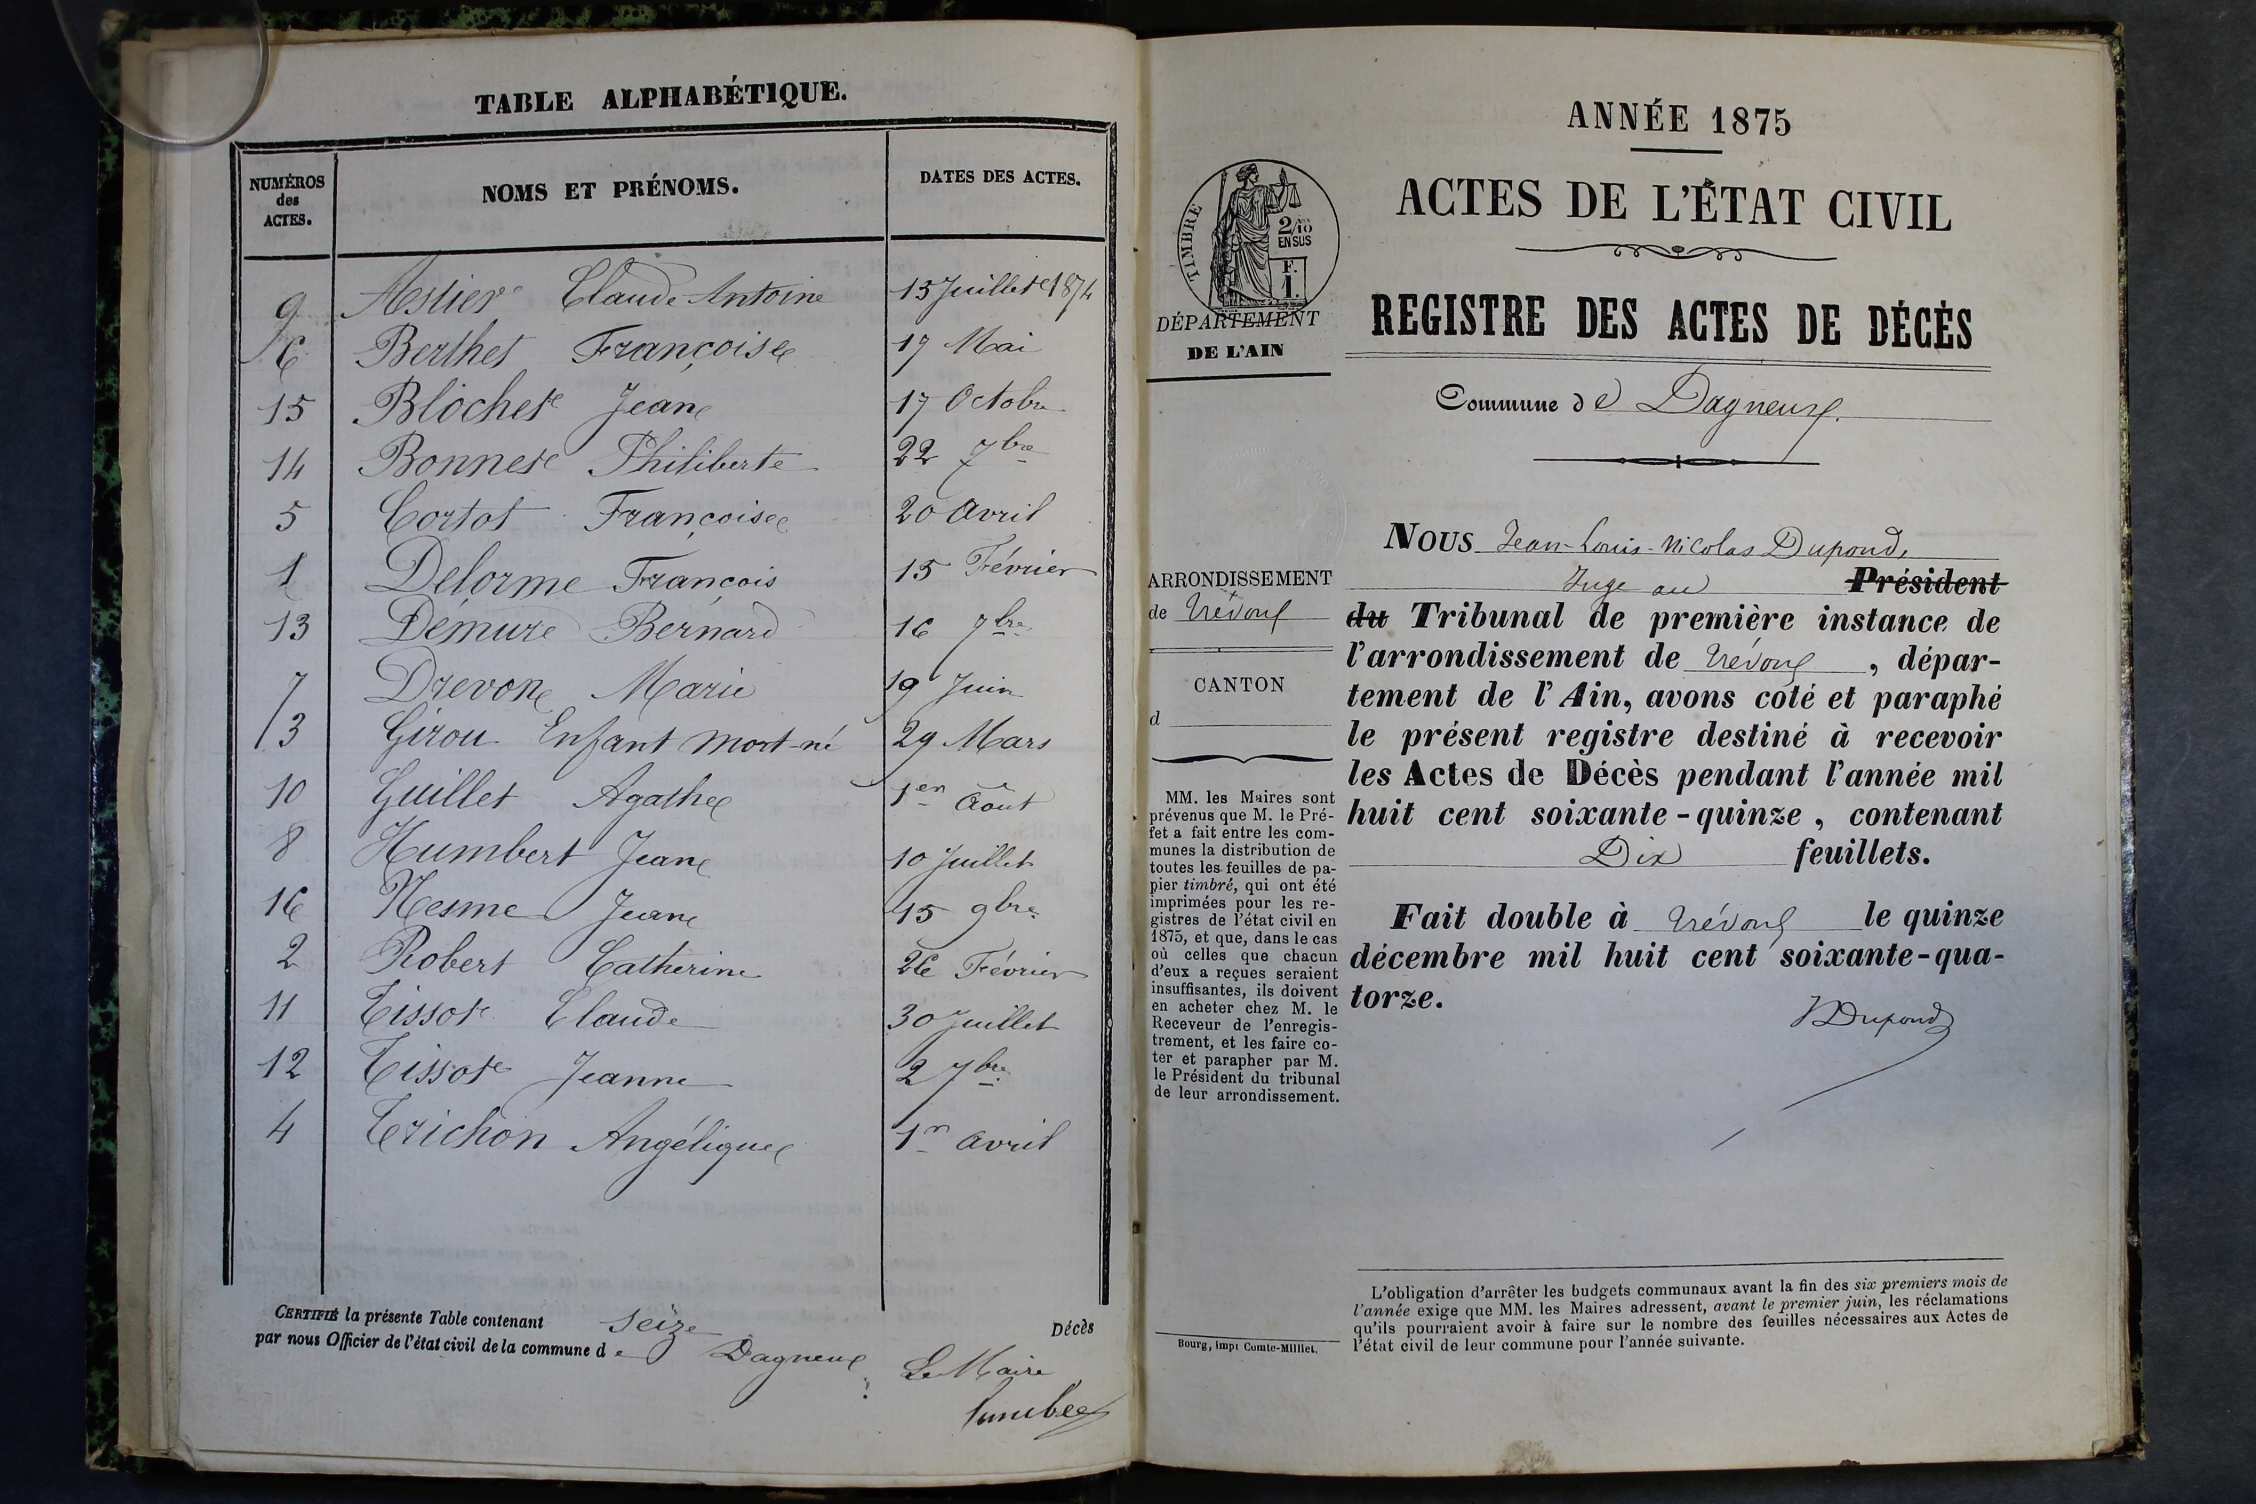 TABLE ALPHABÉTIQUE.
NUMÉROS des ACTES. NOMS ET PRÉNOMS. DATES DES ACTES.
9 Astier Claude Antoine 15 Juillet 1874
6 Berthet Françoise 17 Mai
15 Blochet Jean 17 Octobre
14 Bonnet Philiberte 22 7bre
5 Cortot Françoise 20 Avril
1 Delorme François 15 Février
13 Démure Bernard 16 7bre
7 Drevon Marie 19 Juin
3 Girou Enfant mort-né 29 Mars
10 Guillet Agathe 1er Août
8 Humbert Jean 10 Juillet
16 Nesme Jean 15 9bre
2 Robert Catherine 26 Février
11 Tissot Claude 30 Juillet
12 Tissot Jeanne 2 7bre
4 Trichon Angélique 1er Avril
CERTIFIÉ la présente Table contenant Seize Décès
par nous Officier de l'état civil de la commune de Dagneux
Le Maire
ANNÉE 1875
ACTES DE L'ÉTAT CIVIL
TIMBRE
2/10
EN SUS
F.
1.
DÉPARTEMENT
DE L'AIN
REGISTRE DES ACTES DE DÉCÈS
Commune de Dagneux.
ARRONDISSEMENT
de Trévoux
CANTON
d
MM. les Maires sont
prévenus que M. le Pré-
fet a fait entre les com-
munes la distribution de
toutes les feuilles de pa-
pier timbré, qui ont été
imprimées pour les re-
gistres de l'état civil en
1875, et que, dans le cas
où celles que chacun
d'eux a reçues seraient
insuffisantes, ils doivent
en acheter chez M. le
Receveur de l'enregis-
trement, et les faire co-
ter et parapher par M.
le Président du tribunal
de leur arrondissement.
Bourg, impr Comte-Milliet.
NOUS Jean-Louis-Nicolas Dupond,
Juge au Président
du Tribunal de première instance de
l'arrondissement de Trévoux, dépar-
tement de l'Ain, avons coté et paraphé
le présent registre destiné à recevoir
les Actes de Décès pendant l'année mil
huit cent soixante-quinze, contenant
Dix feuillets.
Fait double à Trévoux le quinze
décembre mil huit cent soixante-qua-
torze.
Dupond
L'obligation d'arrêter les budgets communaux avant la fin des six premiers mois de
l'année exige que MM. les Maires adressent, avant le premier juin, les réclamations
qu'ils pourraient avoir à faire sur le nombre des feuilles nécessaires aux Actes de
l'état civil de leur commune pour l'année suivante.